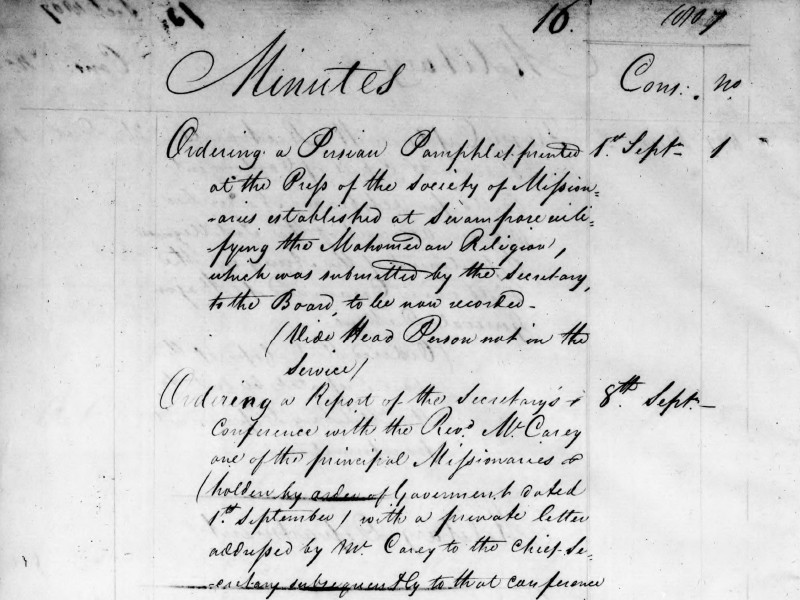 16.
1807
Minutes
Cons: no
Ordering a Persian Pamphlet printed 1st Sept 1
at the Press of the Society of Mission=
=aries established at Serampore vili=
=fying the Mahomedan Religion,
which was submitted by the Secretary,
to the Board, to be now recorded.
(Vide Head Person not in the
Service)
Ordering a Report of the Secretary's 8th Sept.
Conference with the Revd. Mr. Carey
one of the principal Missionaries
(holden by order of Goverment dated
1st September) with a private letter
addressed by Mr Carey to the Chief Se=
=cretary subsequently to that conference